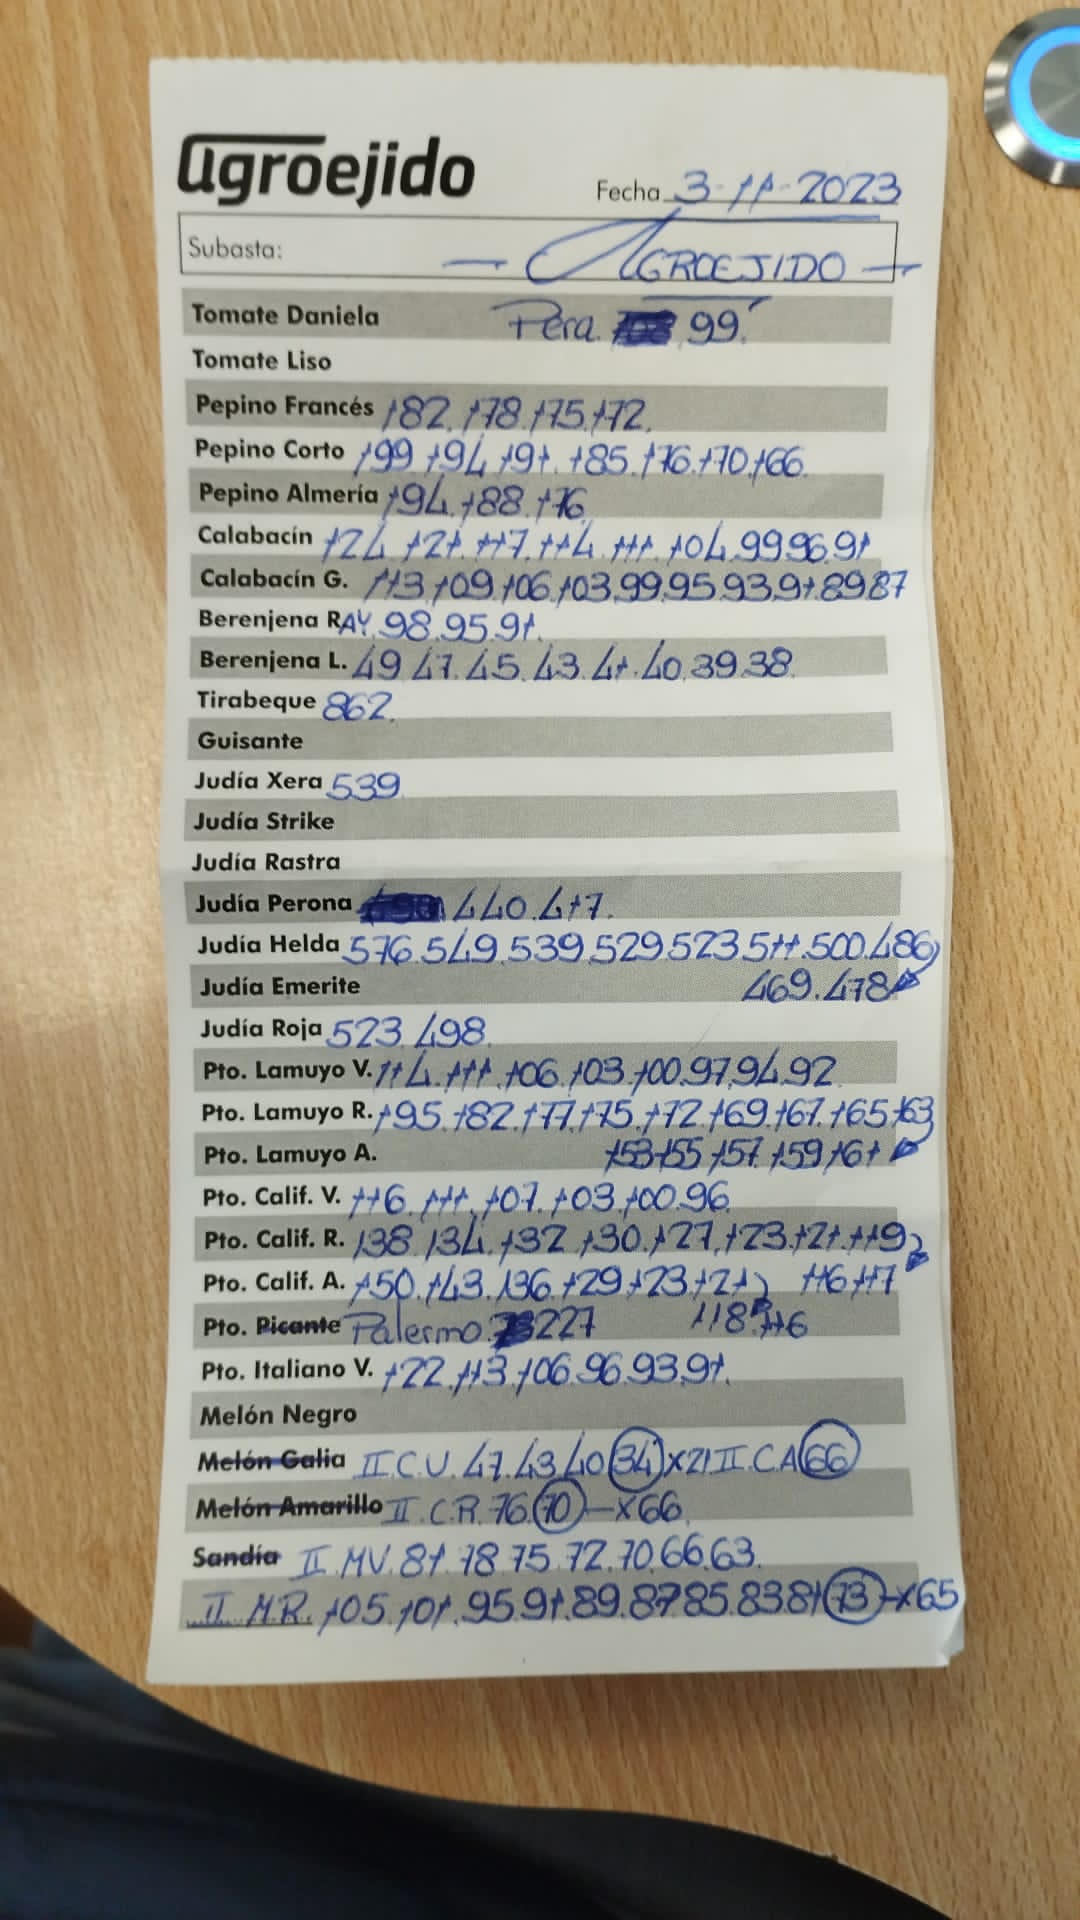 agroejido
Fecha 3-11-2023
Subasta: - AGROEJIDO -
Tomate Daniela Pera. 99.
Tomate Liso
Pepino Francés 182. 178. 175. 172.
Pepino Corto 199 194 191. 185. 176. 170. 166.
Pepino Almería 194. 188. 176.
Calabacín 124. 121. 117. 114. 111. 104. 99 96. 91
Calabacín G. 113. 109. 106. 103. 99. 95. 93. 91. 89 87
Berenjena RAY. 98. 95. 91.
Berenjena L. 49 47. 45. 43. 41. 40. 39. 38.
Tirabeque 862.
Guisante
Judía Xera 539.
Judía Strike
Judía Rastra
Judía Perona 440. 417.
Judía Helda 576. 549. 539. 529. 523. 511. 500. 486
Judía Emerite 469. 478
Judía Roja 523. 498.
Pto. Lamuyo V. 114. 111. 106. 103. 100. 97. 94. 92
Pto. Lamuyo R. 195. 182. 177. 175. 172. 169. 167. 165. 163
Pto. Lamuyo A. 153 155 157. 159 161
Pto. Calif. V. 116. 111. 107. 103. 100. 96.
Pto. Calif. R. 138. 134. 132. 130. 127. 123. 121. 119
Pto. Calif. A. 150. 143. 136. 129. 123. 121 116. 117
Pto. Picante Palermo. 227 118. 116
Pto. Italiano V. 122. 113. 106. 96. 93. 91.
Melón Negro
Melón Galia II.C.V. 47. 43. 40 34 x21 II.CA 66
Melón Amarillo II.C.R. 76. 70 - x66.
Sandía II.MV. 81. 78. 75. 72. 70. 66. 63.
II.M.R. 105. 101. 95. 91. 89. 87 85. 83. 81 73 - x65